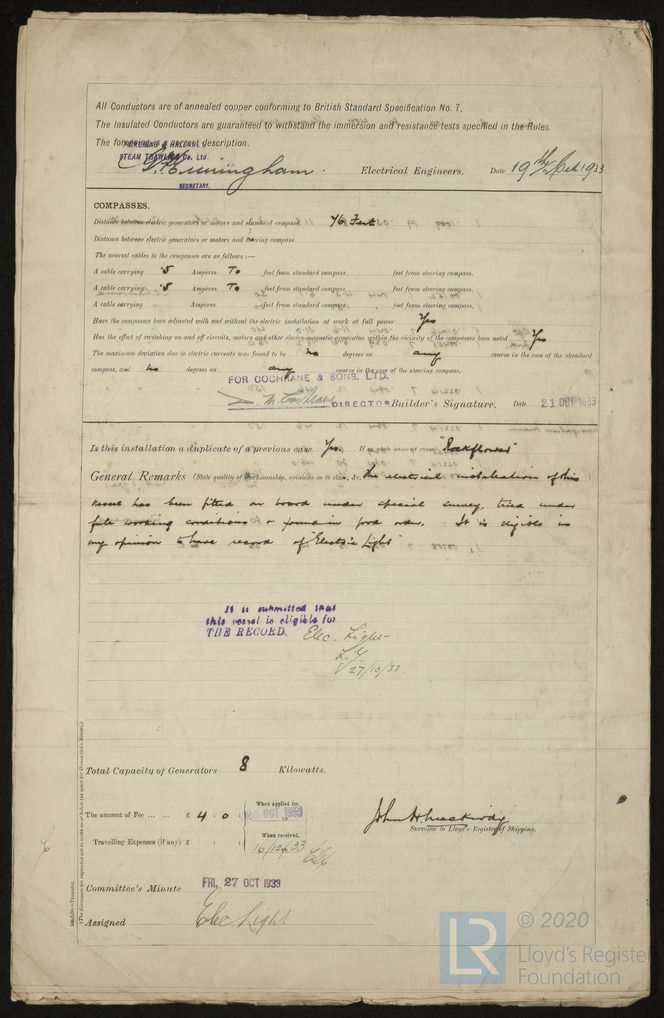 All Conductors are of annealed copper conforming to British Standard Specification No. 7.
The Insulated Conductors are guaranteed to withstand the immersion and resistance tests specified in the Rules.
The foregoing is a correct description.
STEAM TRAWLING Co. Ltd.
Electrical Engineers. Date 19th Oct 1933
SECRETARY.
COMPASSES.
Distance between electric generators or motors and standard compass 76 Feet
Distance between electric generators or motors and steering compass
The nearest cables to the compasses are as follows:—
A cable carrying .5 Ampères To feet from standard compass feet from steering compass.
A cable carrying .5 Ampères To feet from standard compass feet from steering compass.
A cable carrying Ampères feet from standard compass feet from steering compass.
Have the compasses been adjusted with and without the electric installation at work at full power Yes
Has the effect of switching on and off circuits, motors and other electro-magnetic generators within the vicinity of the compasses been noted Yes
The maximum deviation due to electric currents was found to be no degrees on any course in the case of the standard
compass, and no degrees on any course in the case of the steering compass.
FOR COCHRANE & SONS, LTD.
DIRECTOR Builder's Signature. Date 21 OCT 1933
Is this installation a duplicate of a previous case Yes. If so, state name of vessel "Rockflower"
General Remarks (State quality of workmanship, opinions as to class, &c. The electrical installation of this
vessel has been fitted on board under special survey, tried under
full working conditions & found in good order. It is eligible in
my opinion to have record of "Electric Light"
It is submitted that
this vessel is eligible for
THE RECORD. Elec. Light
27/10/33
Total Capacity of Generators 8 Kilowatts.
The amount of Fee ... ... £ 4 : 0 : When applied for, OCT 1933
When received,
Travelling Expenses (if any) £ : : 16/12/33
Surveyor to Lloyd's Register of Shipping.
Committee's Minute FRI. 27 OCT 1933
Assigned Elec Light
© 2020
LR Lloyd's Register
Foundation